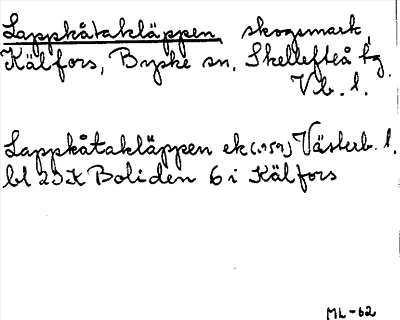 Lappkåtakläppen, skogsmark,
Källfors, Byske sn, Skellefteå tg
Vb. l.
Lappkåtakläppen ek (1959) Västerb. l.
bl 23 K Boliden 6 i Källfors
ML-62